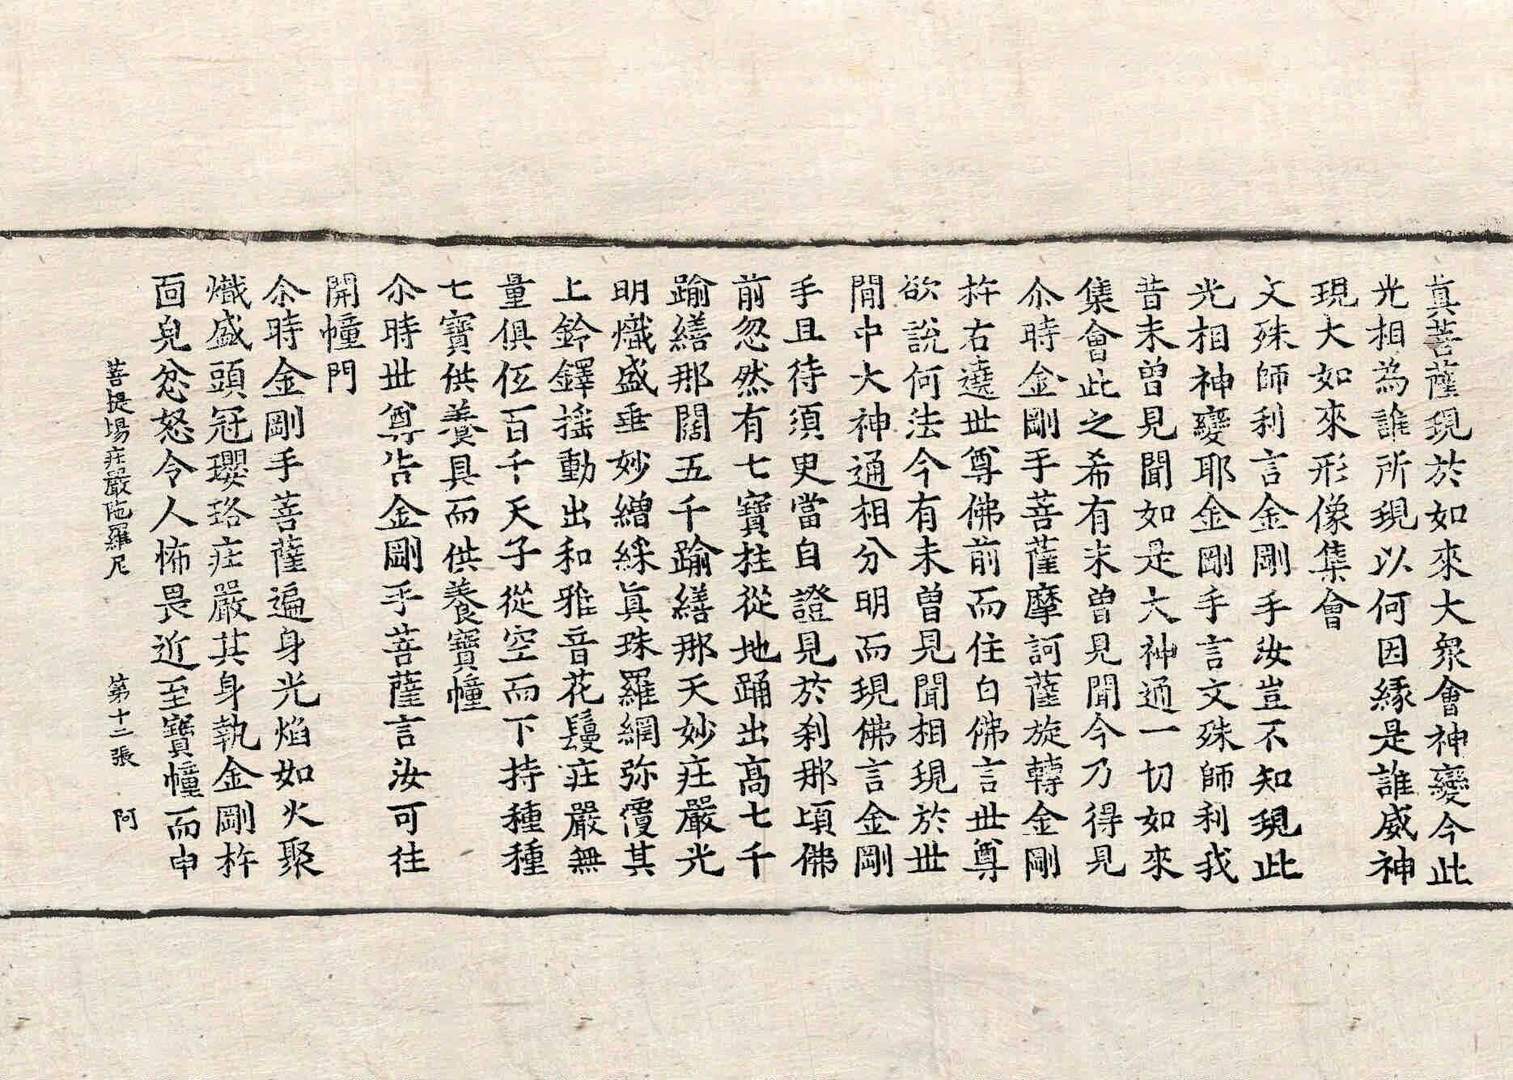 真菩薩現於如來大衆會神變今此
光相為誰所現以何因縁是誰威神
現大如來形像集會
文殊師利言金剛手汝豈不知現此
光相神變耶金剛手言文殊師利我
昔未曽見聞如是大神通一切如來
集會此之希有未曽見聞今乃得見
尒時金剛手菩薩摩訶薩旋轉金剛
杵右遶世尊佛前而住白佛言世尊
欲說何法今有未曽見聞相現於世
間中大神通相分明而現佛言金剛
手且待須臾當自證見於刹那頃佛
前忽然有七寶柱從地踊出髙七千
踰繕那闊五千踰繕那天妙莊嚴光
明熾盛垂妙繒綵真珠羅網弥覆其
上鈴鐸搖動出和雅音花鬘莊嚴無
量俱伍百千天子從空而下持種種
七寶供養具而供養寶幢
尒時世尊告金剛手菩薩言汝可往
開幢門
尒時金剛手菩薩遍身光焰如火聚
熾盛頭冠瓔珞莊嚴其身執金剛杵
面皃忿怒令人怖畏近至寶幢而申
菩提場莊嚴陁羅尼　第十二張　阿